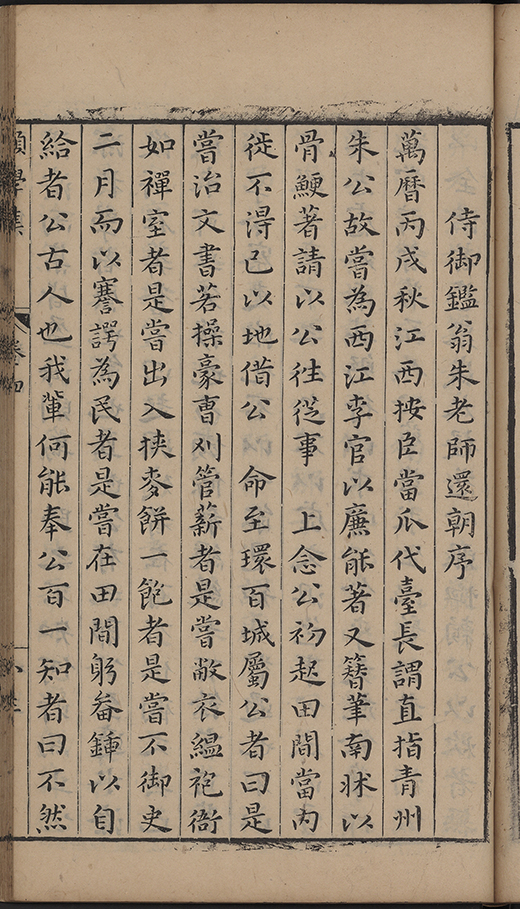 侍御鑑翁朱老師還朝序
萬曆丙戌秋江西按臣當瓜代臺長謂直指青州
朱公故嘗為西江李官以廉能著又簪筆南牀以
骨鯁著請以公往從事　上念公初起田間當內
徙不得已以地借公　命至環百城屬公者曰是
嘗治文書若操豪曹刈管薪者是嘗敝衣縕袍衙
如禪室者是嘗出入挾麥餅一飽者是嘗不御史
二月而以謇諤為民者是嘗在田間躬畚鍤以自
給者公古人也我輩何能奉公百一知者曰不然
學集
卷十四